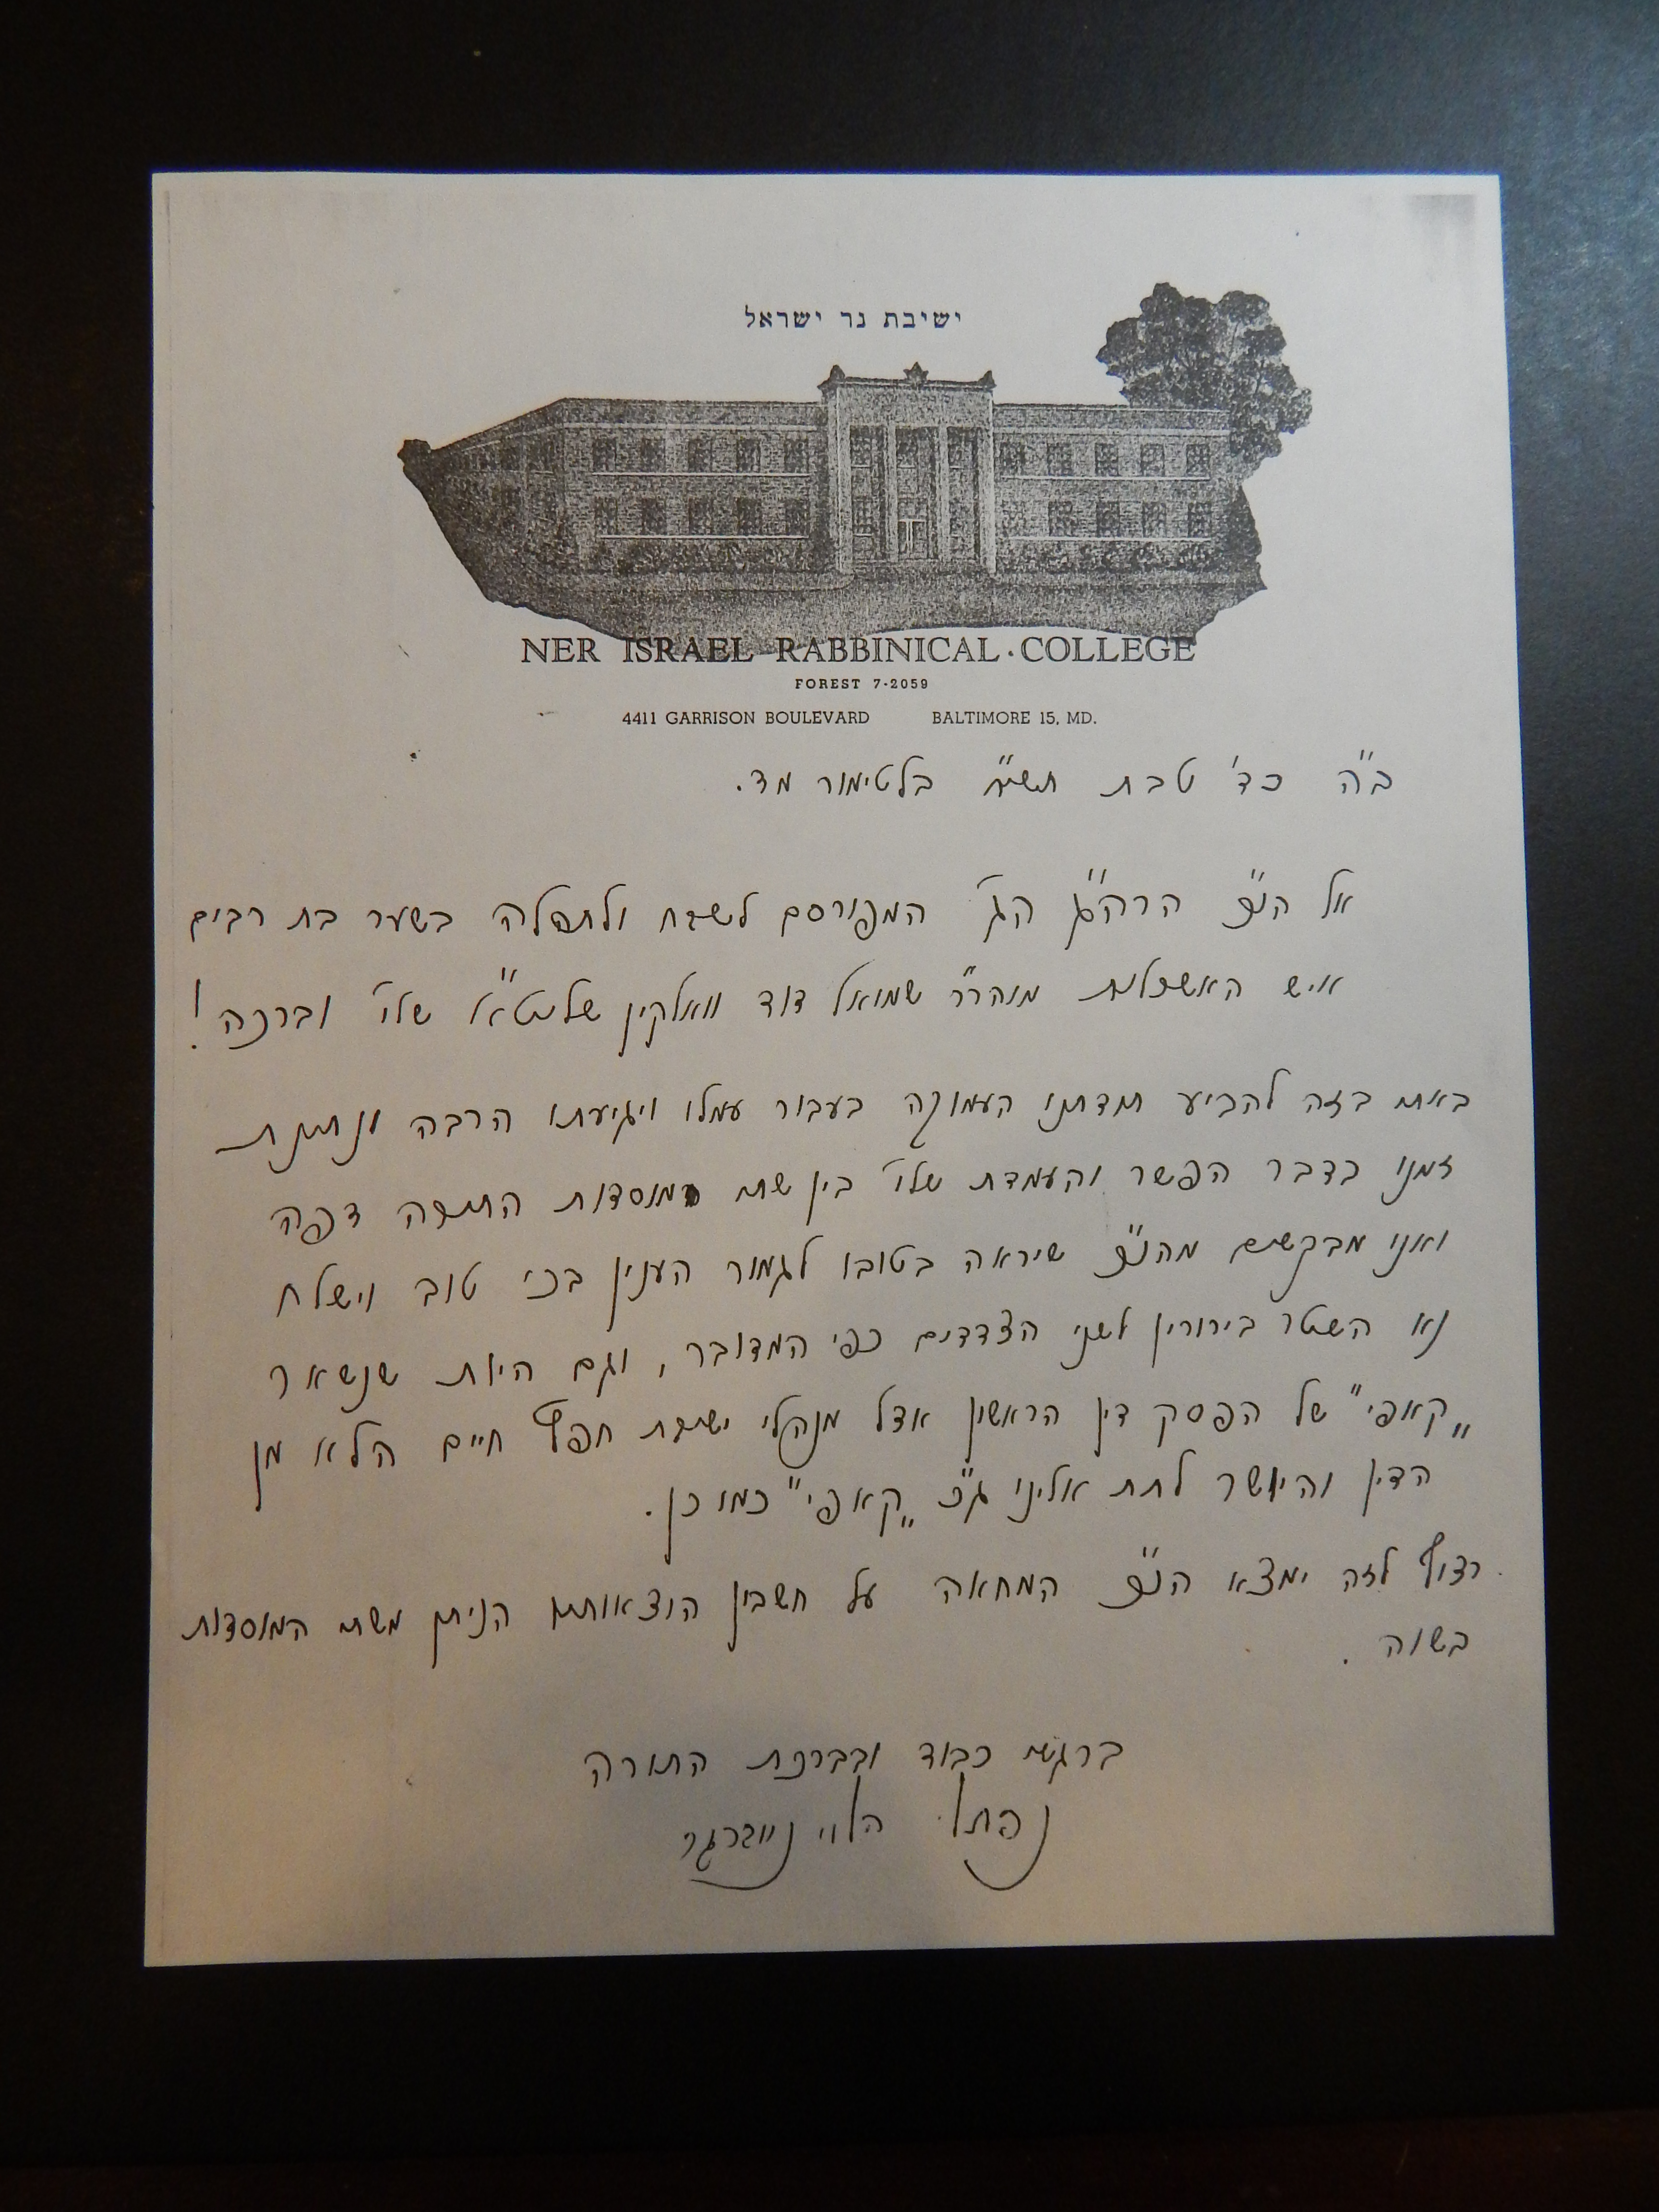 ישיבת נר ישראל
NER ISRAEL RABBINICAL COLLEGE
FOREST 7-2059
4411 GARRISON BOULEVARD BALTIMORE 15, MD.
ב"ה כד' טבת בלטימור מד.
אל הרה"ג הג' המפורסם לשבח ולתהלה בשער בת רבים
איש האשכלות מוהרר שמואל דוד וואלקין שליט"א שלו' וברכה!
באתי בזה להביע תודתנו העמוקה בעבור עמלו ויגיעתו הרבה ונתינת
זמנו בדבר הפשר והעמדת שלו' בין שתי מוסדות התורה דפה
ואנו מבקשים שיראה בטובו לגמור הענין בכי טוב וישלח
נא השטר בירורין לשני הצדדים כפי המדובר, וגם היות שנשאר
„קאפי" של הפסק דין הראשון אצל מנהלי ישיבת חפץ חיים הלא מן
הדין והיושר לתת אלינו ג"כ „קאפי" כמו כן.
רצוף לזה ימצא המחאה על חשבון הוצאותיו הניתן משתי המוסדות
בשוה.
ברגשי כבוד ובברכת התורה
נפתלי הלוי נויברגר